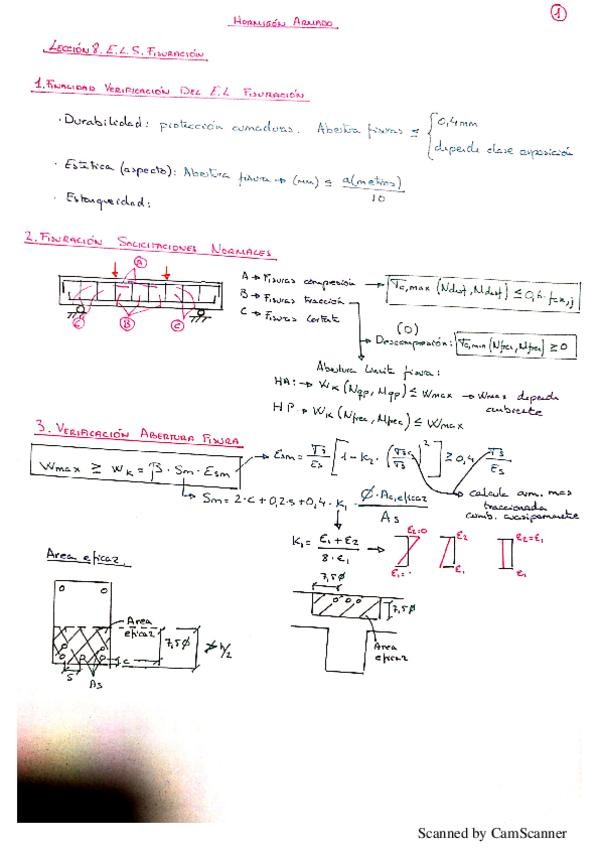 1
HORMIGÓN ARMADO
LECCIÓN 8. E.L.S. FISURACIÓN
1. FINALIDAD VERIFICACIÓN DEL E.L FISURACIÓN
· Durabilidad: protección armaduras. Abertura fisuras ≤ { 0,4mm
depende clase exposición
· Estética (aspecto): Abertura fisura → (mm) ≤ a(metros)/10
· Estanqueidad:
2. FISURACIÓN SOLICITACIONES NORMALES
A
C B C
A → Fisuras compresión → σc,max (Ndesf, Mdesf) ≤ 0,6·fck,j
B → Fisuras tracción
C → Fisuras cortante
(O)
→ Descompresión: σc,min (Nfrec, Mfrec) ≥ 0
Abertura límite fisura:
HA: → Wk (Nqp, Mqp) ≤ Wmax → Wmax depende ambiente
HP → Wk (Nfrec, Mfrec) ≤ Wmax
3. VERIFICACIÓN ABERTURA FISURA
Wmax ≥ Wk = β · Sm · Esm
→ Esm = σs/Es [1 - K2 · (σsc/σs)²] ≥ 0,4 σs/Es
→ calcula arm. mas traccionada comb. cuasipermanente
→ Sm = 2·c + 0,2·s + 0,4 · K1 · Ø·Ac,eficaz/As
K1 = (ε1 + ε2)/(8·ε1) →
ε2=0 ε2 ε2=ε1
ε1 ε1 ε1
Area eficaz
Area eficaz
7,5Ø
≯ h/2
c
S
As
7,5Ø
7,5Ø
Area eficaz
Scanned by CamScanner